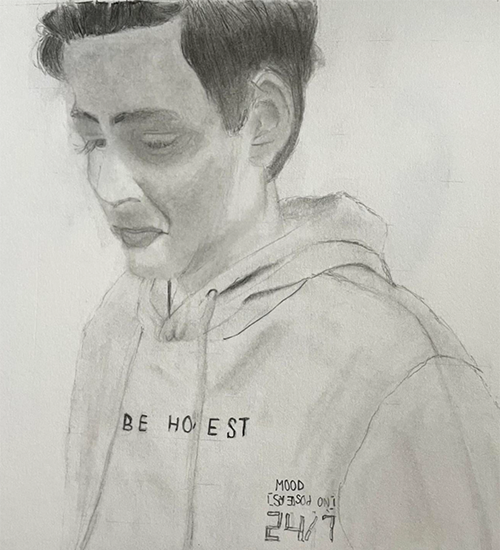 BE HO EST
MOOD
[NO POSERS]
24/7